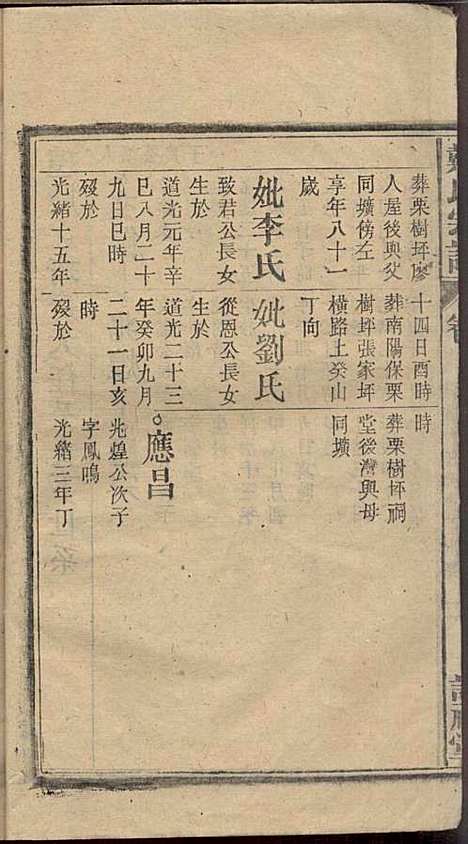 葬栗樹坪廖
人屋後與父
同壙傍左
享年八十一
歲
妣李氏
致君公長女
生於
道光元年辛
巳八月二十
九日巳時
歿於
光緒十五年
十四日酉時
葬南陽保栗
樹坪張家坪
橫路上癸山
丁向
妣劉氏
從恩公長女
生於
道光二十三
年癸卯九月
二十一日亥
時
歿於
時
葬栗樹坪祠
堂後灣與母
同壙
應昌
兆煌公次子
字鳳鳴
光緒三年丁